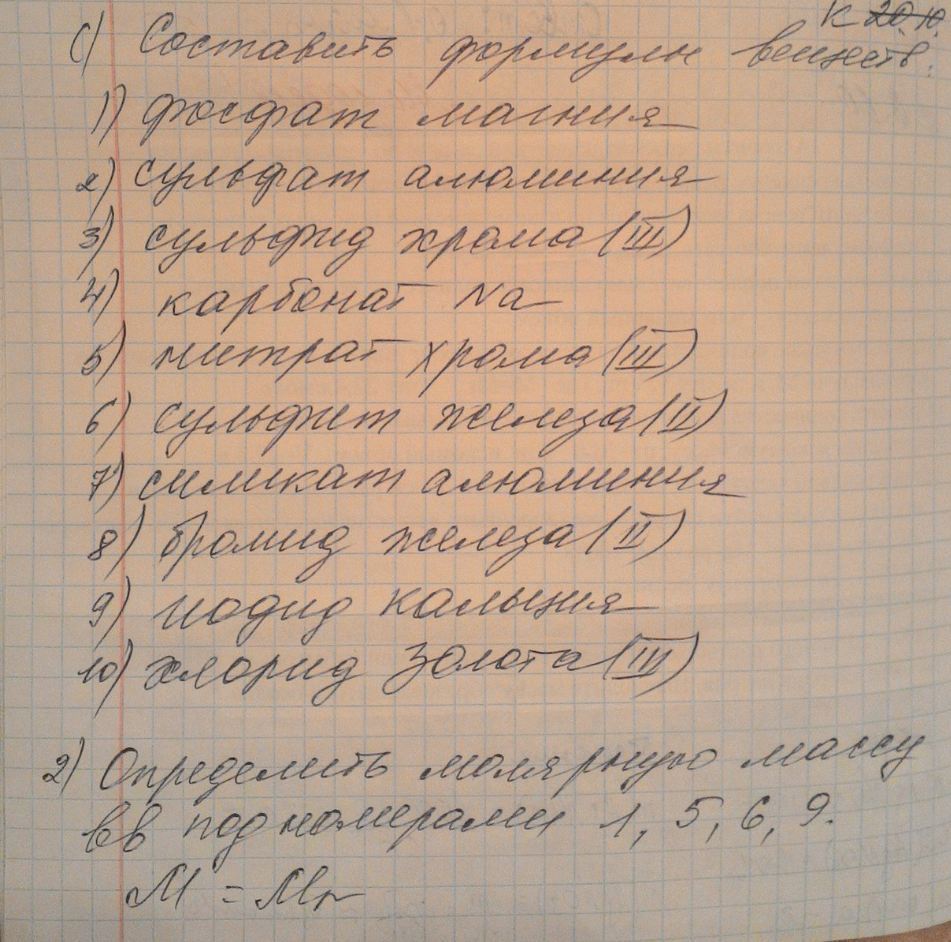 к 20.10.
C) Составить формулы веществ.
1) фосфат магния
2) сульфат алюминия
3) сульфид хрома (III)
4) карбонат Na
5) нитрат хрома (III)
6) сульфит железа (II)
7) силикат алюминия
8) бромид железа (II)
9) иодид кальция
10) хлорид золота (III)
2) Определить молярную массу
вв под номерами 1, 5, 6, 9.
M = Mr